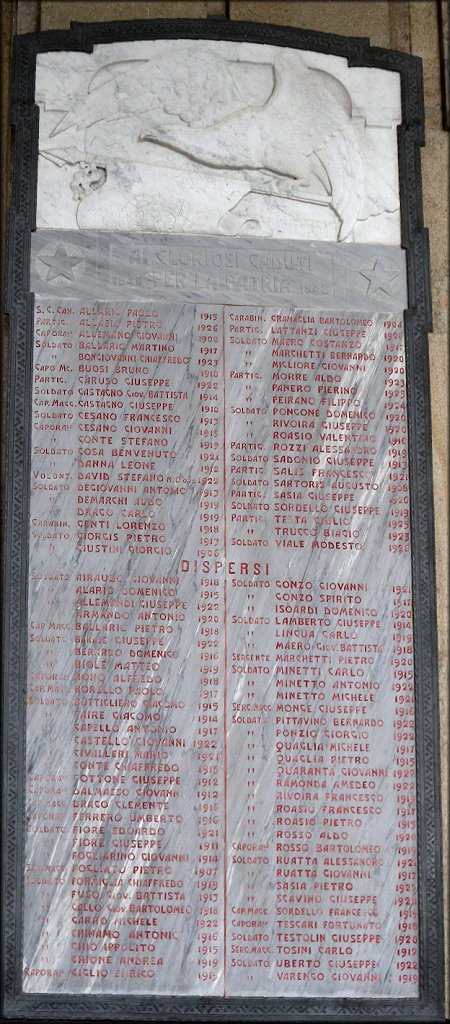 AI GLORIOSI CADUTI
PER LA PATRIA
S. C. CAN. ALLARIO PAOLO 1915
PARTIG. ALLASIA PIETRO 1926
CAPORAL ALLEMANO GIOVANNI 1908
SOLDATO BALLARIO MARTINO 1917
" BONGIOVANNI CHIAFFREDO 1923
CAPO MC. BUOSI BRUNO 1910
PARTIG. CARUSO GIUSEPPE 1922
SOLDATO CASTAGNO GIOV. BATTISTA 1914
CAP. MAGG. CASTAGNO GIUSEPPE 1910
SOLDATO CESANO FRANCESCO 1913
CAPORAL CESANO GIOVANNI 1915
" CONTE STEFANO 1919
SOLDATO COSA BENVENUTO 1921
" DANNA LEONE 1912
VOLONT. DAVID STEFANO 1922
SOLDATO DEGIOVANNI ANTONIO 1913
" DEMARCHI ALDO 1919
" DRAGO CARLO 1919
CARABIN. GENTI LORENZO 1918
SOLDATO GIORGIS PIETRO 1917
" GIUSTINI GIORGIO 1906
CARABIN. GRAMAGLIA BARTOLOMEO 1904
PARTIG. LATTANZI GIUSEPPE 1926
SOLDATO MAERO COSTANZO 1917
" MARCHETTI BERNARDO 1920
" MIGLIORE GIOVANNI 1920
PARTIG. MORRE ALDO 1923
" PANERO PIERINO 1925
" PEIRANO FILIPPO 1924
SOLDATO PONGONE DOMENICO 1920
" RIVOIRA GIUSEPPE 1920
" ROASIO VALENTINO 1916
PARTIG. ROZZI ALESSANDRO 1919
SOLDATO SADONIO GIUSEPPE 1913
PARTIG. SALIS FRANCESCO 1921
SOLDATO SARTORIS AUGUSTO 1908
PARTIG. SASIA GIUSEPPE 1926
SOLDATO SORDELLO GIUSEPPE 1919
PARTIG. TESTA GIULIO 1925
" TRUCCO BIAGIO 1925
SOLDATO VIALE MODESTO 1920
DISPERSI
SOLDATO AIRAUDO GIOVANNI 1918
" ALARIO DOMENICO 1915
" ALLEMANDI GIUSEPPE 1922
" ARMANDO ANTONIO 1920
CAP. MAGG. BALLARIO PIETRO 1918
SOLDATO BARALE GIUSEPPE 1922
" BERARDO DOMENICO 1916
" BIOLE MATTEO 1919
CAPORAL BONO ALFREDO 1918
CAP. MAGG. BORELLO PAOLO 1917
SOLDATO BUTTIGLIERO GIACOMO 1915
" CAIRE GIACOMO 1914
" CAPELLO ANTONIO 1917
" CASTELLO GIOVANNI 1922
" CIVALLERI MARIO 1921
" CONTE CHIAFFREDO 1915
CAPORAL COTTONE GIUSEPPE 1912
CAPORAL DALMASSO GIOVANNI 1912
CAP. MAGG. DRAGO CLEMENTE 1916
CAPORAL FERRERO UMBERTO 1916
SOLDATO FIORE EDOARDO 1921
" FIORE GIUSEPPE 1911
" FOGLIARINO GIOVANNI 1914
SER. MAGG. FOGLIATO PIETRO 1907
SOLDATO FORNIGLIA CHIAFFREDO 1919
" FUSO GIOV. BATTISTA 1913
" GALLO GIOV. BARTOLOMEO 1918
" GARRO MICHELE 1922
" GHINAMO ANTONIO 1916
" GHIO IPPOLITO 1915
" GHIONE ANDREA 1919
CAPORAL GIGLIO ENRICO 1915
SOLDATO GONZO GIOVANNI 1921
" GONZO SPIRITO 1917
" ISOARDI DOMENICO 1920
SOLDATO LAMBERTO GIUSEPPE 1914
" LINGUA CARLO 1919
" MAERO GIOV. BATTISTA 1918
SERGENTE MARCHETTI PIETRO 1920
SOLDATO MINETTI CARLO 1915
" MINETTO ANTONIO 1922
" MINETTO MICHELE 1921
SERG. MAGG. MONGE GIUSEPPE 1916
SOLDATO PITTAVINO BERNARDO 1922
" PONZIO GIORGIO 1922
" QUAGLIA MICHELE 1917
" QUAGLIA PIETRO 1915
" QUARANTA GIOVANNI 1922
" RAMONDA AMEDEO 1922
" RIVOIRA FRANCESCO 1919
" ROASIO FRANCESCO 1917
" ROASIO PIETRO 1915
" ROSSO ALDO 1920
CAPORAL ROSSO BARTOLOMEO 1919
SOLDATO RUATTA ALESSANDRO 1921
" RUATTA GIOVANNI 1917
" SASIA PIETRO 1922
" SCAVINO GIUSEPPE 1922
CAP. MAGG. SORDELLO FRANCESCO 1919
CAPORAL TESCARI FORTUNATO 1918
SOLDATO TESTOLIN GIUSEPPE 1920
SERG. MAGG. TOSINI CARLO 1912
SOLDATO UBERTO GIUSEPPE 1922
" VARENGO GIOVANNI 1919